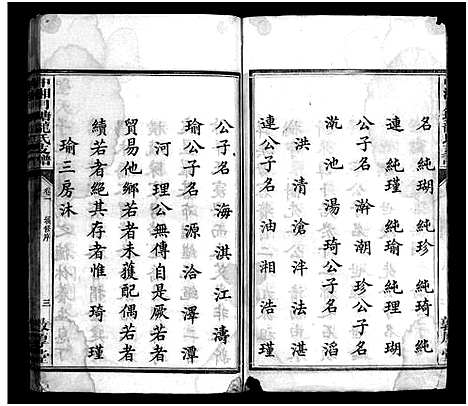 名純瑚純珍純琦純
連純瑾純瑜純理名瑚
公子名澣潮珍公子名
沘池湯琦公子名滔
洪清滄泮法湛
連公子名油湘浩瑾
公子名海淇江濤
瑜公子名源洽澤潭
河理公無傳自是厥若者
貿易他鄉若未獲配偶若者
續若者絕其存者惟琦瑾
瑜三房沐
中湘月塘龍氏支譜
卷一
三
敦厚堂